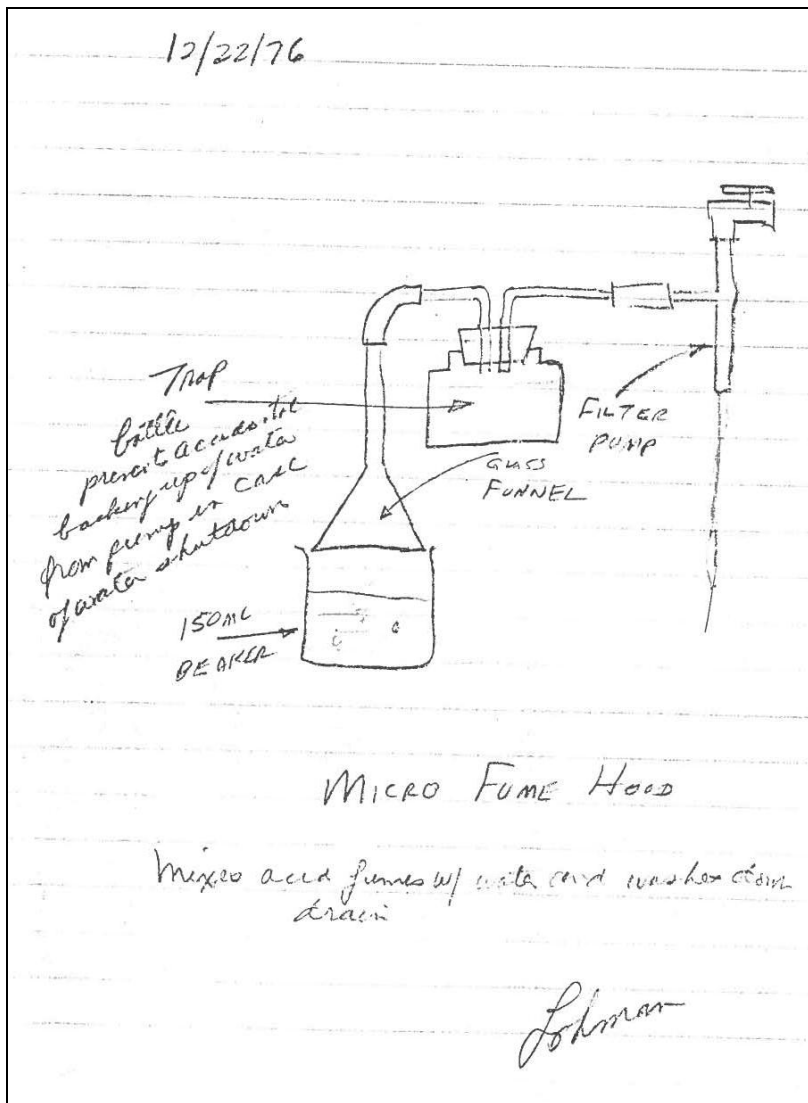 12/22/76
Trap
bottle
prevents accidental
backing up of water
from pump in case
of water shutdown
FILTER
PUMP
GLASS
FUNNEL
150ML
BEAKER
MICRO FUME HOOD
Mixes acid fumes w/ water and washes down
drain
Lohman